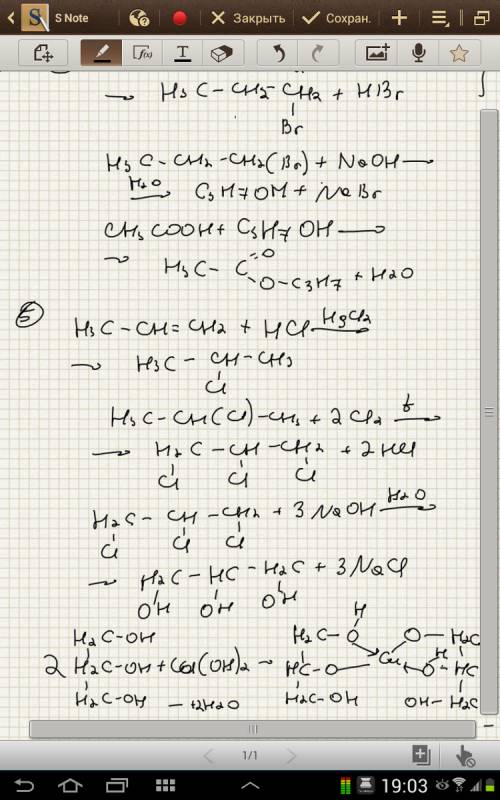 S Note
Закрыть
Сохран.
f(x)
T
→ H3C – CH2 – CH2 + HBr
Br
H3C – CH2 – CH2(Br) + NaOH →
H2O → C3H7OH + NaBr
CH3COOH + C3H7OH →
→ H3C – C =O
O – C3H7 + H2O
5
H3C – CH = CH2 + HCl
→ H3C – CH – CH3
Cl
H3C – CH(Cl) – CH3 + 2Cl2 t →
→ H2C – CH – CH2 + 2HCl
Cl Cl Cl
H2C – CH – CH2 + 3NaOH H2O →
Cl Cl Cl
→ H2C – HC – H2C + 3NaCl
OH OH OH
H
H2C – OH H2C – O O – H2C
2 H2C – OH + Cu(OH)2 → HC – O Cu O H HC
H2C – OH – +2H2O H2C – OH OH – H2C
1/1
19:03